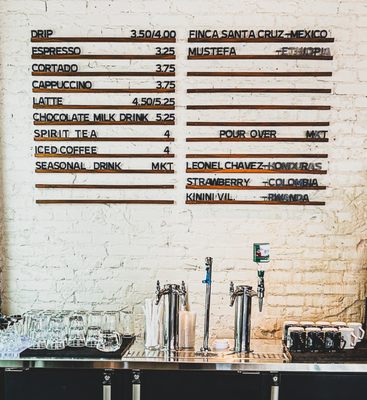 DRIP 3.50/4.00
ESPRESSO 3.25
CORTADO 3.75
CAPPUCCINO 3.75
LATTE 4.50/5.25
CHOCOLATE MILK DRINK 5.25
SPIRIT TEA 4
ICED COFFEE 4
SEASONAL DRINK MKT
FINCA SANTA CRUZ-MEXICO
MUSTEFA -ETHIOPIA
POUR OVER MKT
LEONEL CHAVEZ-HONDURAS
STRAWBERRY -COLOMBIA
KININI VIL. -RWANDA